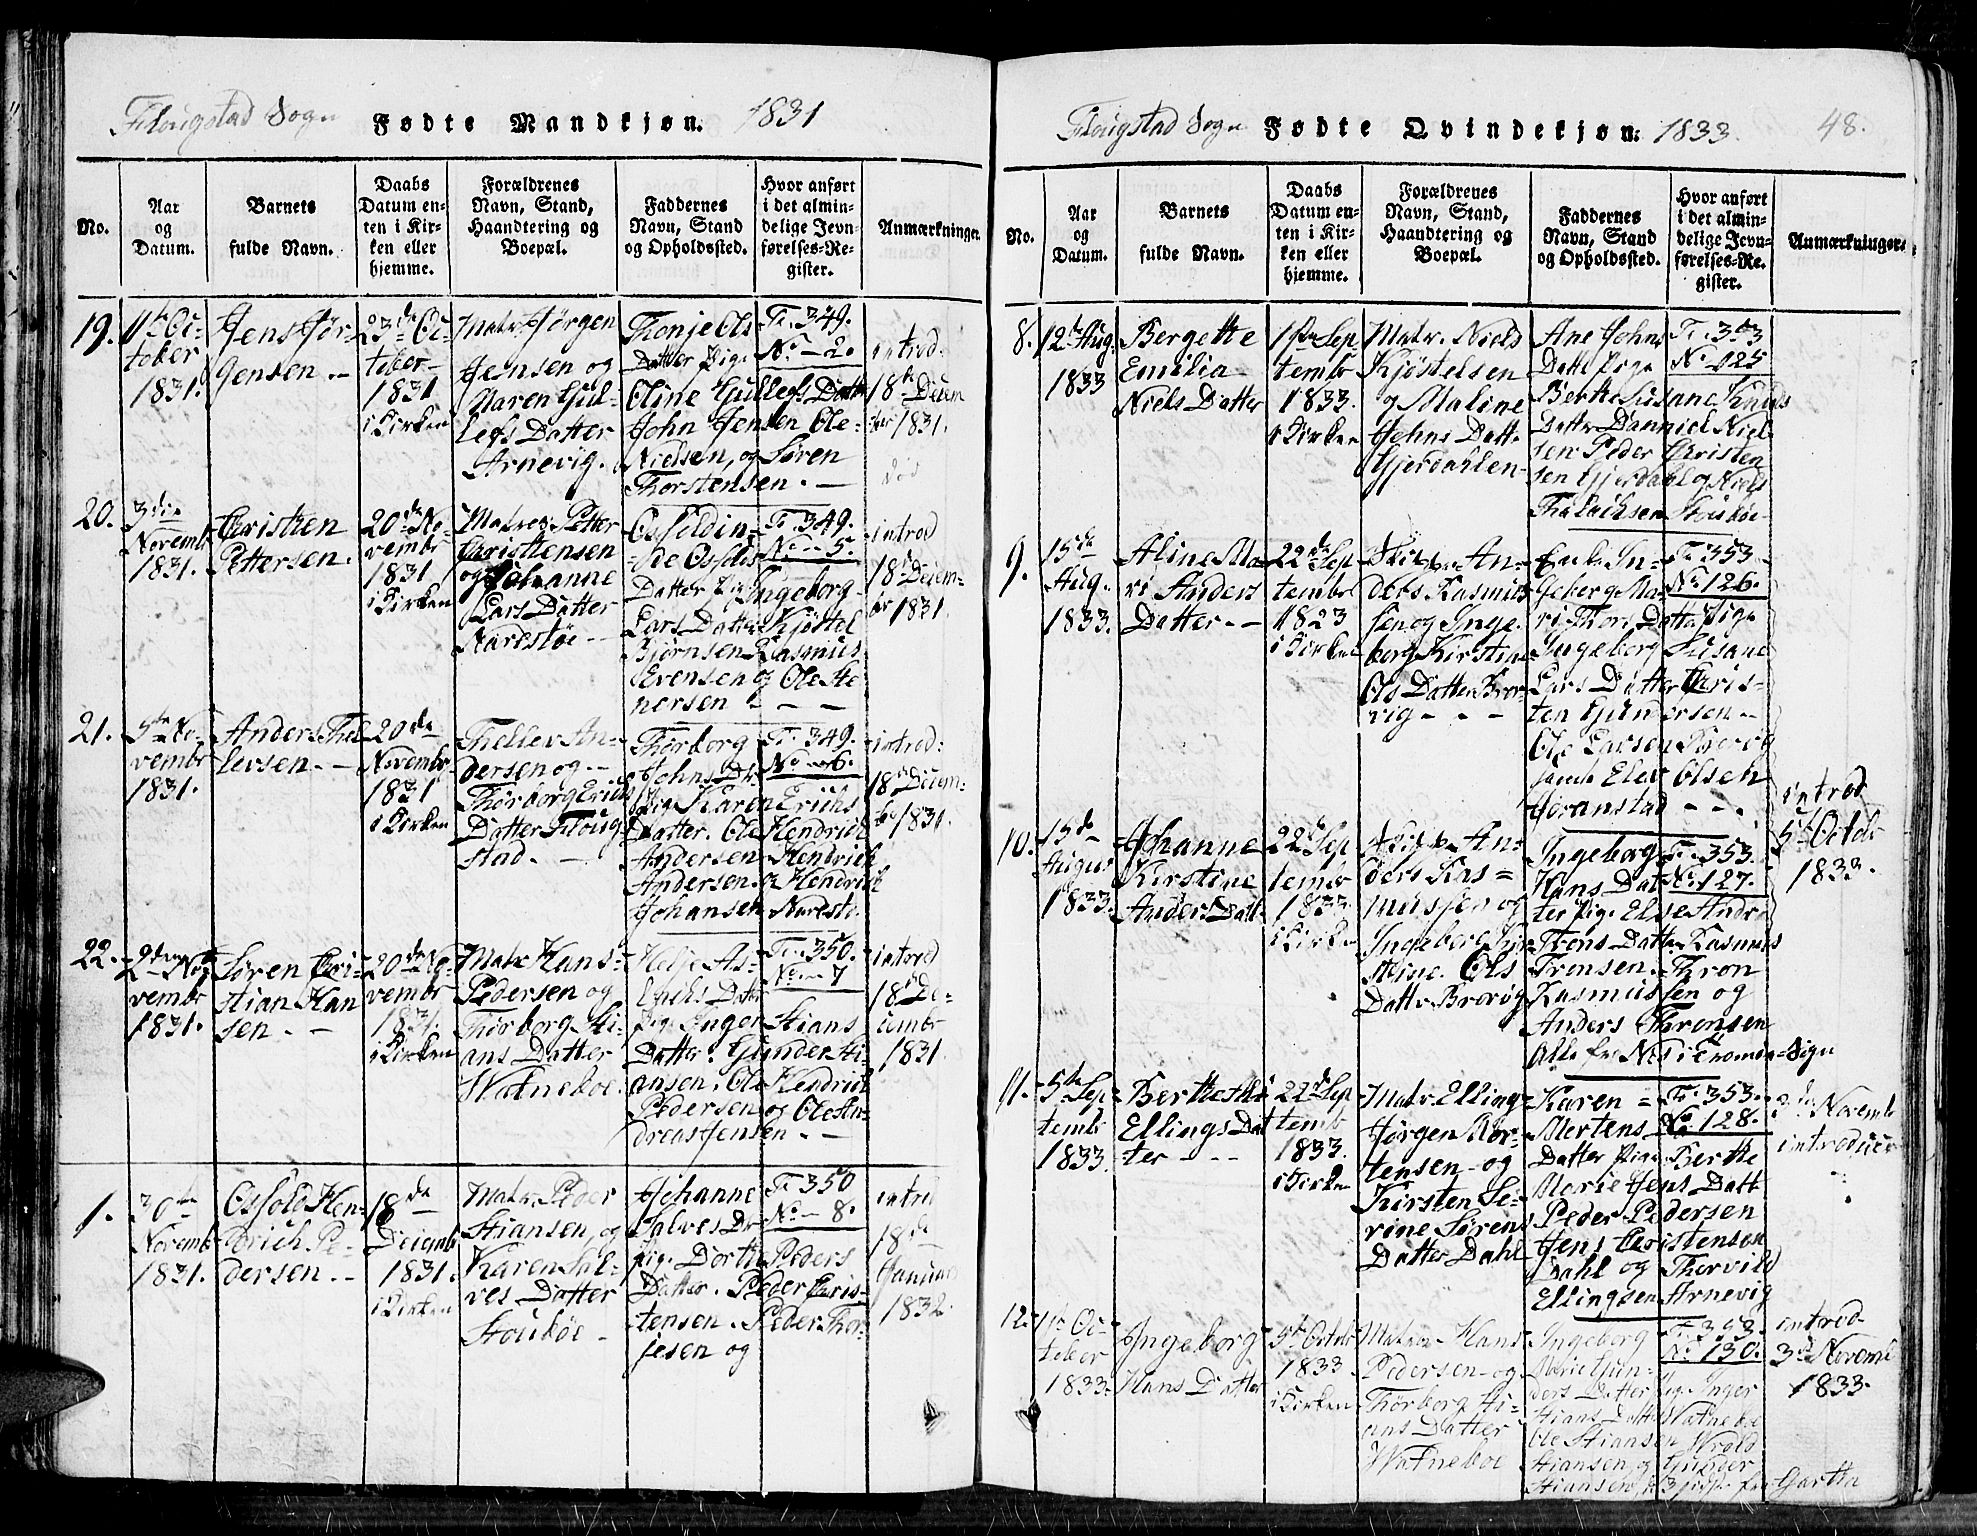 Flougstad Sogn Fødte Mandkjøn. 1831
No.
Aar
og
Datum.
Barnets
fulde Navn.
Daabs
Datum en-
ten i Kir-
ken eller
hjemme.
Forældrenes
Navn, Stand,
Haandtering og
Boepæl.
Faddernes
Navn, Stand
og Opholdssted.
Hvor anført
i det almin-
delige Jevn-
førelses-Re-
gister.
Anmærkninger.
19.
11te Oc-
tober
1831.
Jens Jør-
gensen.
23de Oc-
tober
1831
i Kirken
Matr. Jørgen
Jensen og
Karen Gul-
lefs Datter
Arnevig.
Thonje Ols
Datter Pige
Oline Gullefs Datt
John Jensen Ole
Nielsen, og Søren
Thorstensen.
Fr. 349.
No. 2.
introd.
18de Decem
ber 1831.
20.
3die
Novembr
1831.
Christen
Pettersen.
20de No-
vembr
1831
i Kirken
Matros Petter
Christensen
og Johanne
Lars Datter
Narestøe
Osfoldin-
Datter Pige Ingeborg
Lars Datter Kjøstel
Bjørnsen Rasmus
Evensen og Ole Ste
nersen
Fr. 349.
No. 5.
introd
18de Decem-
br 1831.
21.
5te No-
vembr
1831.
Anders Thel-
levsen.
20de
Novembr
1831
i Kirken
Thellev An-
dersen og
Thorborg Erichs
Datter Floug-
stad.
Thorborg
Johns Dtr
Pig. Karen Erichs
Datter. Ole Hendrich
Andersen Hendrich
Andersen og Hendrich
Johansen Naresto.
Fr. 349.
No. 6.
introd:
18de Decem-
br 1831.
22.
No-
vembr
1831.
Søren Chri-
stian Han
sen.
20de No-
vembr
1831.
i Kirken
Matr Hans
Pedersen og
Thorborg Sti-
ans Datter
Watneboe.
Helje As-
Datter
Pig. Inger Stians
Datter. Gunder Sti-
ansen. Ole Hendrich
Pedersen og Ole An-
dreas Jensen
Fr. 350.
No. 7
introd
18de De-
cembr
1831.
1.
30te
Novembr
1831.
Osfold Hen-
drich Pe-
dersen.
18de
Decembr
1831.
i Kirken
Matr. Peder
Stiansen, og
Karen Sal-
ves Datter
Stoukøe
Johanne
Salves Dtr
Pig. Dorthe Peders
Datter. Peder Chris-
tensen. Peder Thor-
jesen og
Fr 350
No. 8.
intr
18de
Januar
1832.
Flougstad Sogn Fødte Qvindekjøn: 1833. 48.
No.
Aar
og
Datum.
Barnets
fulde Navn.
Daabs
Datum en-
ten i Kir-
ken eller
hjemme.
Forældrenes
Navn, Stand,
Haandtering og
Boepæl.
Faddernes
Navn, Stand
og Opholdsted.
Hvor anført
i det almin-
delige Jevn-
førelses-Re-
gister.
Anmærkninger.
8.
12te Aug.
1833
Bergette
Emilia
Niels Datter
1ste Sep
tembr
1833.
i Kirken
Matr. Niels
Kjøstelsen
og Maline
Johns Datt.
Gjerdahlen
Ane Johns
Datt Pige
Berthe Susane Knuds
Datter Danniel Niel-
sen Peder Christen
sen Gjerdahl og Niels
Stoukøe
Fr. 353
No. 125
9.
15de
Aug.
1833.
Aline Ma
ri Anders
Datter
22de Sep
tembr
1823
i Kirken
Skipper An-
ders Rasmus
sen og Inge
borg Kirstine
Ols Datter Bror-
vig
Enke In-
geborg Ma-
ri Thon Datter Pige
Ingeborg Susane
Lars Datter Chris-
ten Gundersen
Ole Larsen Brovig
Elev Olsen
Horanstad
Fr. 353
No. 126.
10.
15de
August
1833.
Johanne
Kirstine
Anders Datt.
22de Sep
tembr
1833.
i Kirken
Skipper An-
ders Ras-
mussen og
Ingeborg Kir-
stine Ols
Datter Brovig
Ingeborg
Hans Dat-
ter Pige. Else Andre
Trons Datter Rasmus
Tronsen. Thron
Rasmussen og
Anders Thronsen
Alle fra Næs i Tromøe Sogn
Fr. 353.
No. 127.
introd
5te Octobr
1833.
11.
5te Sep
tembr
1833.
Berthe
Ellings Dat
ter
22de Sep
tembr
1833.
i Kirken
Matr. Elling
Jørgen Mor-
tensen og
Kirsten Se-
rine Sørens
Datter Dahl
Karen
Mertens
Datter Pige Berthe
Marie Jens Datt
Peder Pedersen
Jens Christensen
Dahl og Thorvild
Ellingsen Arnevig
Fr. 353.
No 128.
3de Novembr
introducer
12.
1ste Oc-
tober
1833.
Ingeborg
Hans Datter
5te Octobr
1833
i Kirken
Matros Hans
Pedersen og
Thorborg Sti-
ans Datter
Watneboe
Ingeborg
Marie Gun-
ders Datter Pig. Inger
Stians Datter Watneboe
Ole Stiansen Wrold
Stiansen og Gunder
Stiansen,
No. 130.
introd
3de Novembr
1833.